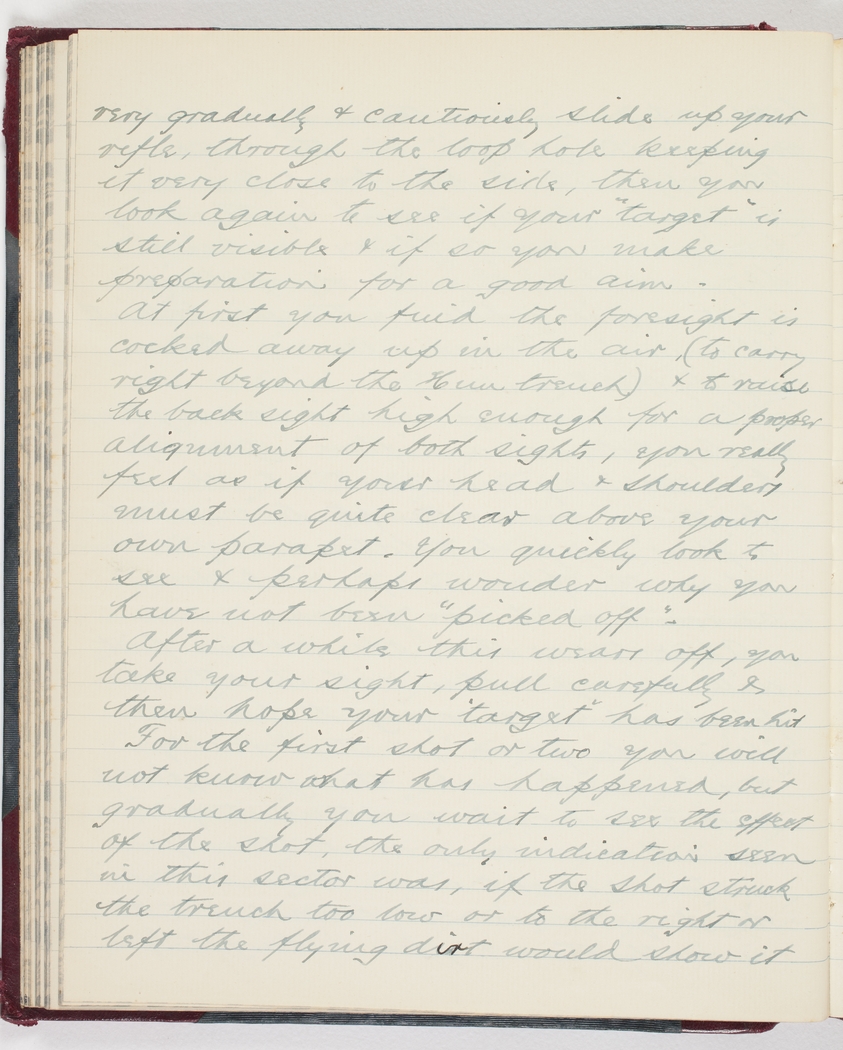 very gradually & cautiously slide up your
rifle, through the loop hole keeping
it very close to the side, then you
look again to see if your "target" is
still visible & if so you make
preparation for a good aim.
At first you find the foresight is
cocked away up in the air, (to carry
right beyond the Hun trench) & to raise
the back sight high enough for a proper
alignment of both sights, you really
feel as if your head & shoulders
must be quite clear above your
own parapet. You quickly look to
see & perhaps wonder why you
have not been "picked off".
After a while this wears off, you
take your sight, pull carefully &
then hope your "target" has been hit
For the first shot or two you will
not know what has happened, but
gradually you wait to see the effect
of the shot, the only indication seen
in this sector was, if the shot struck
the trench too low or to the right or
left the flying dirt would show it